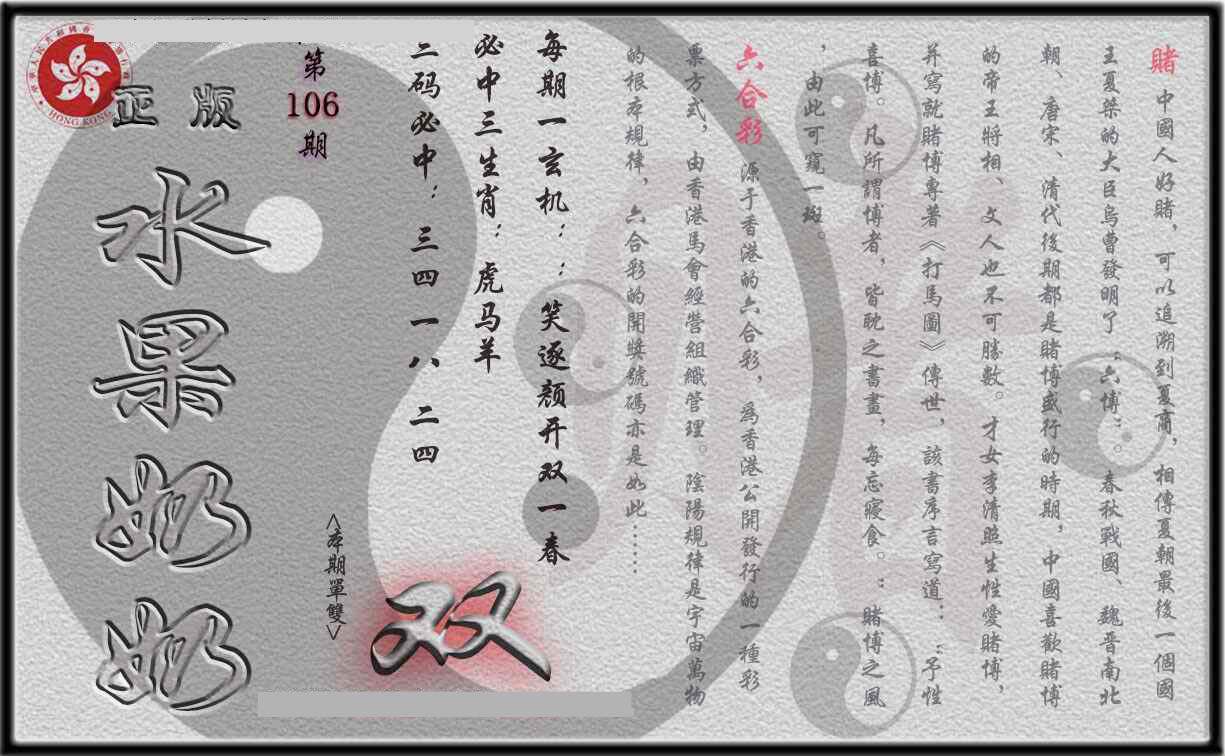 賭 中國人好賭，可以追溯到夏商，相傳夏朝最後一個國
王夏桀的大臣烏曹發明了“六博”。春秋戰國、魏晋南北
朝、唐宋、清代後期都是賭博盛行的時期，中國喜歡賭博
的帝王將相、文人也不可勝數。才女李清照生性愛賭博，
并寫就賭博專著《打馬圖》傳世，該書序言寫道：“予性
喜博。凡所謂博者，皆眈之書畫，每忘寢食。”賭博之風
，由此可窺一斑。
六合彩 源于香港的六合彩，為香港公開發行的一種彩
票方式，由香港馬會經營組織管理。陰陽規律是宇宙萬物
的根本規律，六合彩的開獎號碼亦是如此……
每期一玄机：：笑逐颜开双一春
必中三生肖：虎马羊
二码必中：三四 一八 二四
第
106
期
<本期單雙>
双
正版
水果奶奶
HONG KONG